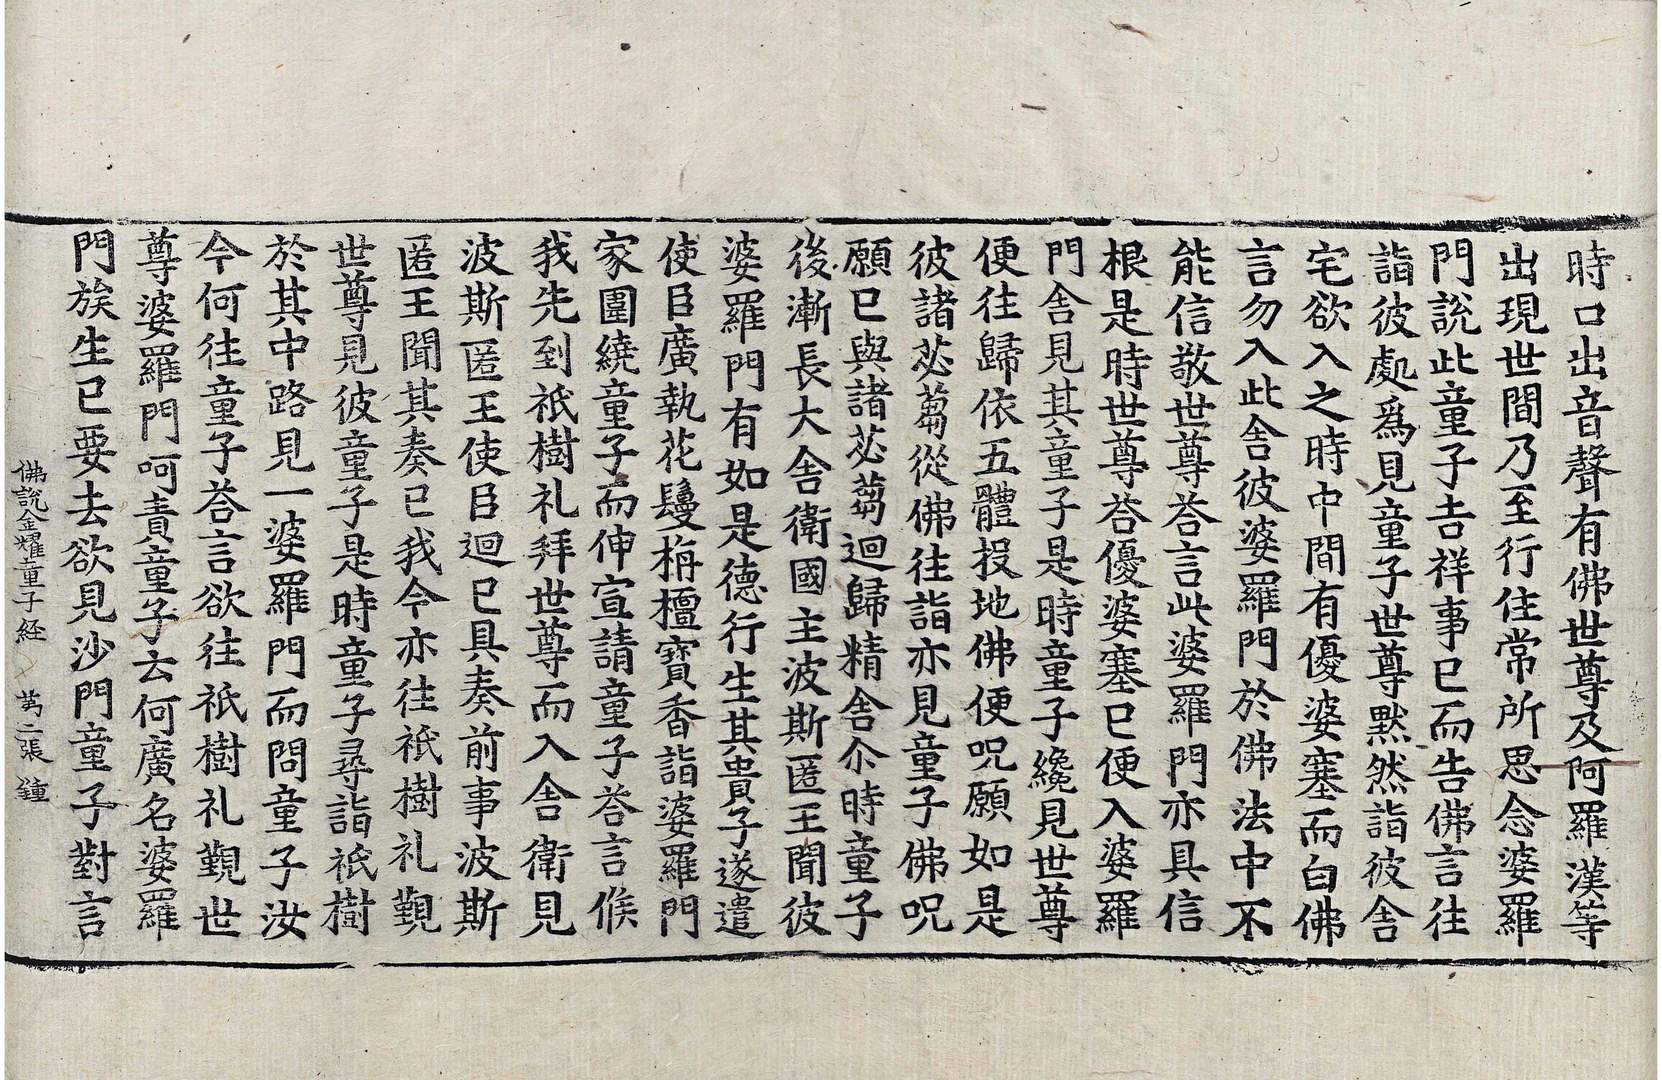 時口出音聲有佛世尊及阿羅漢等
出現世間乃至行住常所思念婆羅
門說此童子吉祥事已而告佛言往
詣彼處爲見童子世尊黙然詣彼舍
宅欲入之時中間有優婆塞而白佛
言勿入此舍彼婆羅門於佛法中不
能信敬世尊荅言此婆羅門亦具信
根是時世尊荅優婆塞已便入婆羅
門舍見其童子是時童子纔見世尊
便往歸依五體投地佛便呪願如是
彼諸苾蒭從佛往詣亦見童子佛呪
願已與諸苾蒭迴歸精舍尒時童子
後漸長大舍衛國主波斯匿王聞彼
婆羅門有如是德行生其貴子遂遣
使臣廣執花鬘栴檀寶香詣婆羅門
家圍繞童子而伸宣請童子荅言候
我先到祇樹礼拜世尊而入舍衛見
波斯匿王使臣迴已具奏前事波斯
匿王聞其奏已我今亦往祇樹礼覲
世尊見彼童子是時童子尋詣祇樹
於其中路見一婆羅門而問童子汝
今何往童子荅言欲往祇樹礼覲世
尊婆羅門呵責童子云何廣名婆羅
門族生已要去欲見沙門童子對言
佛說金耀童子経 苐二張 鍾